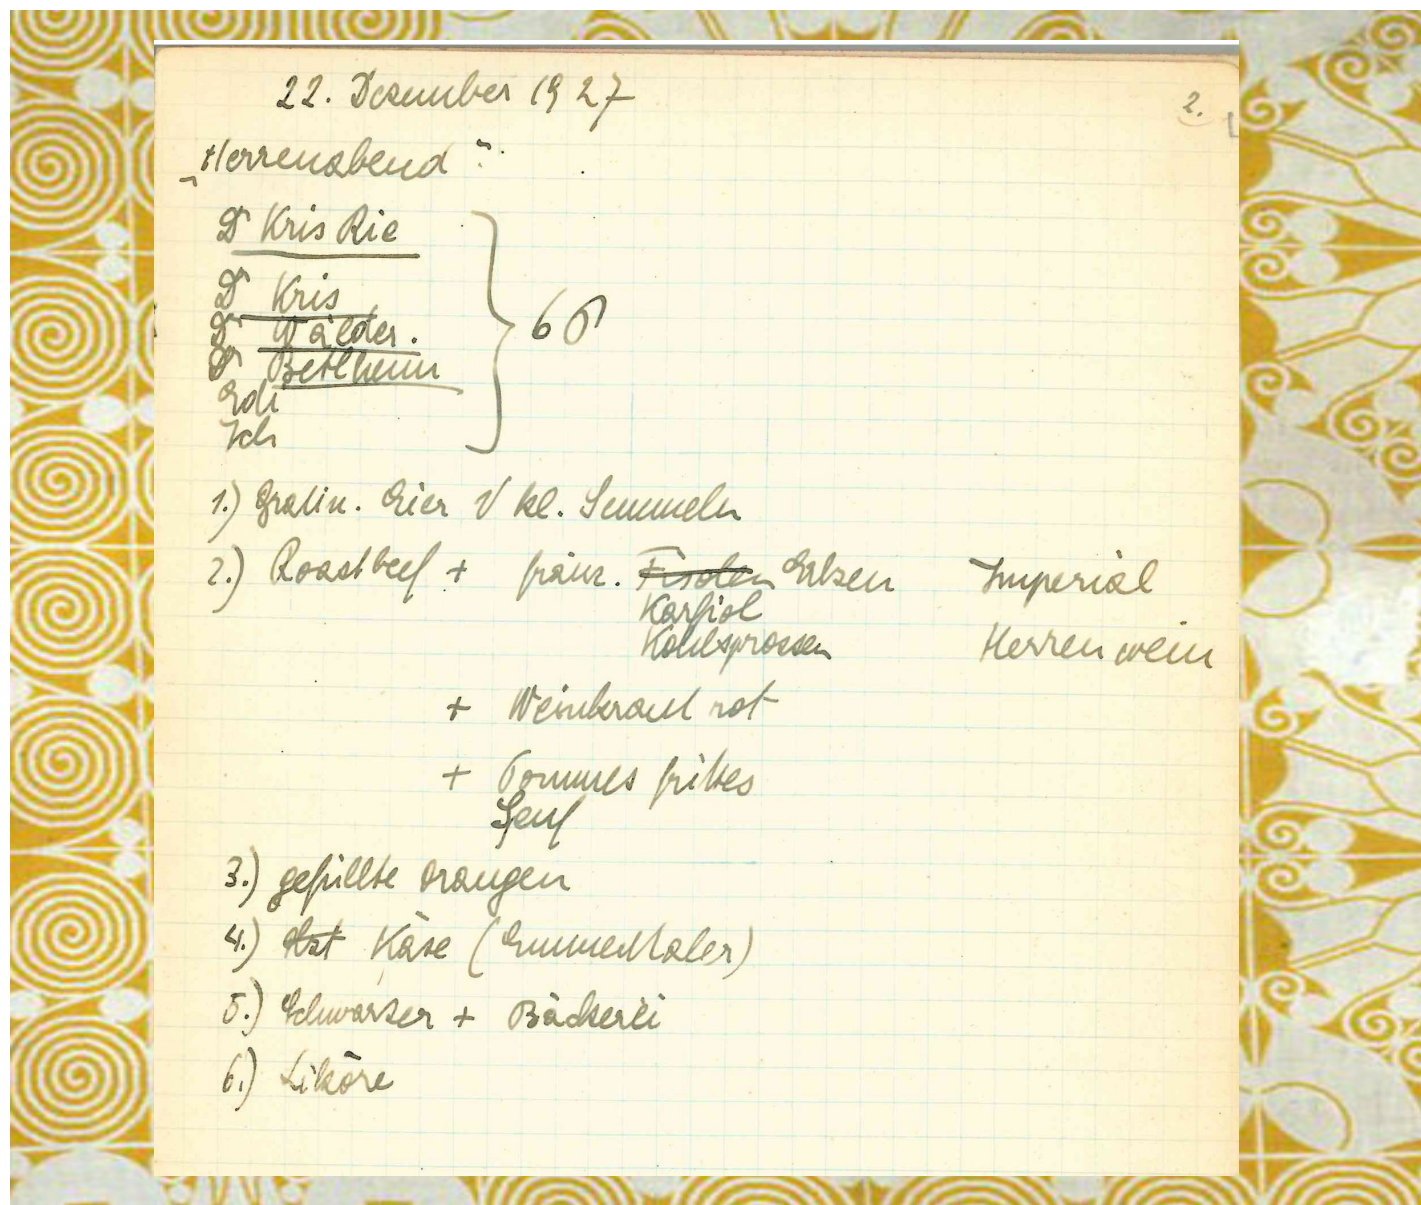 22. Dezember 1927
2.
„Herrenabend“
Dr Kris Rie
Dr Kris
Dr Wälder.
Dr Betlheim
Edi
Ich
6 P
1.) Gratin. Eier V kl. Semmeln
2.) Roastbeef + franz. Fisolen Erbsen Imperial
Karfiol
Kohlsprossen Herrenwein
+ Weinkraut rot
+ Pommes frittes
Senf
3.) gefüllte Orangen
4.) Käse (Emmentaler)
5.) Schwarzer + Bäckerei
6.) Liköre